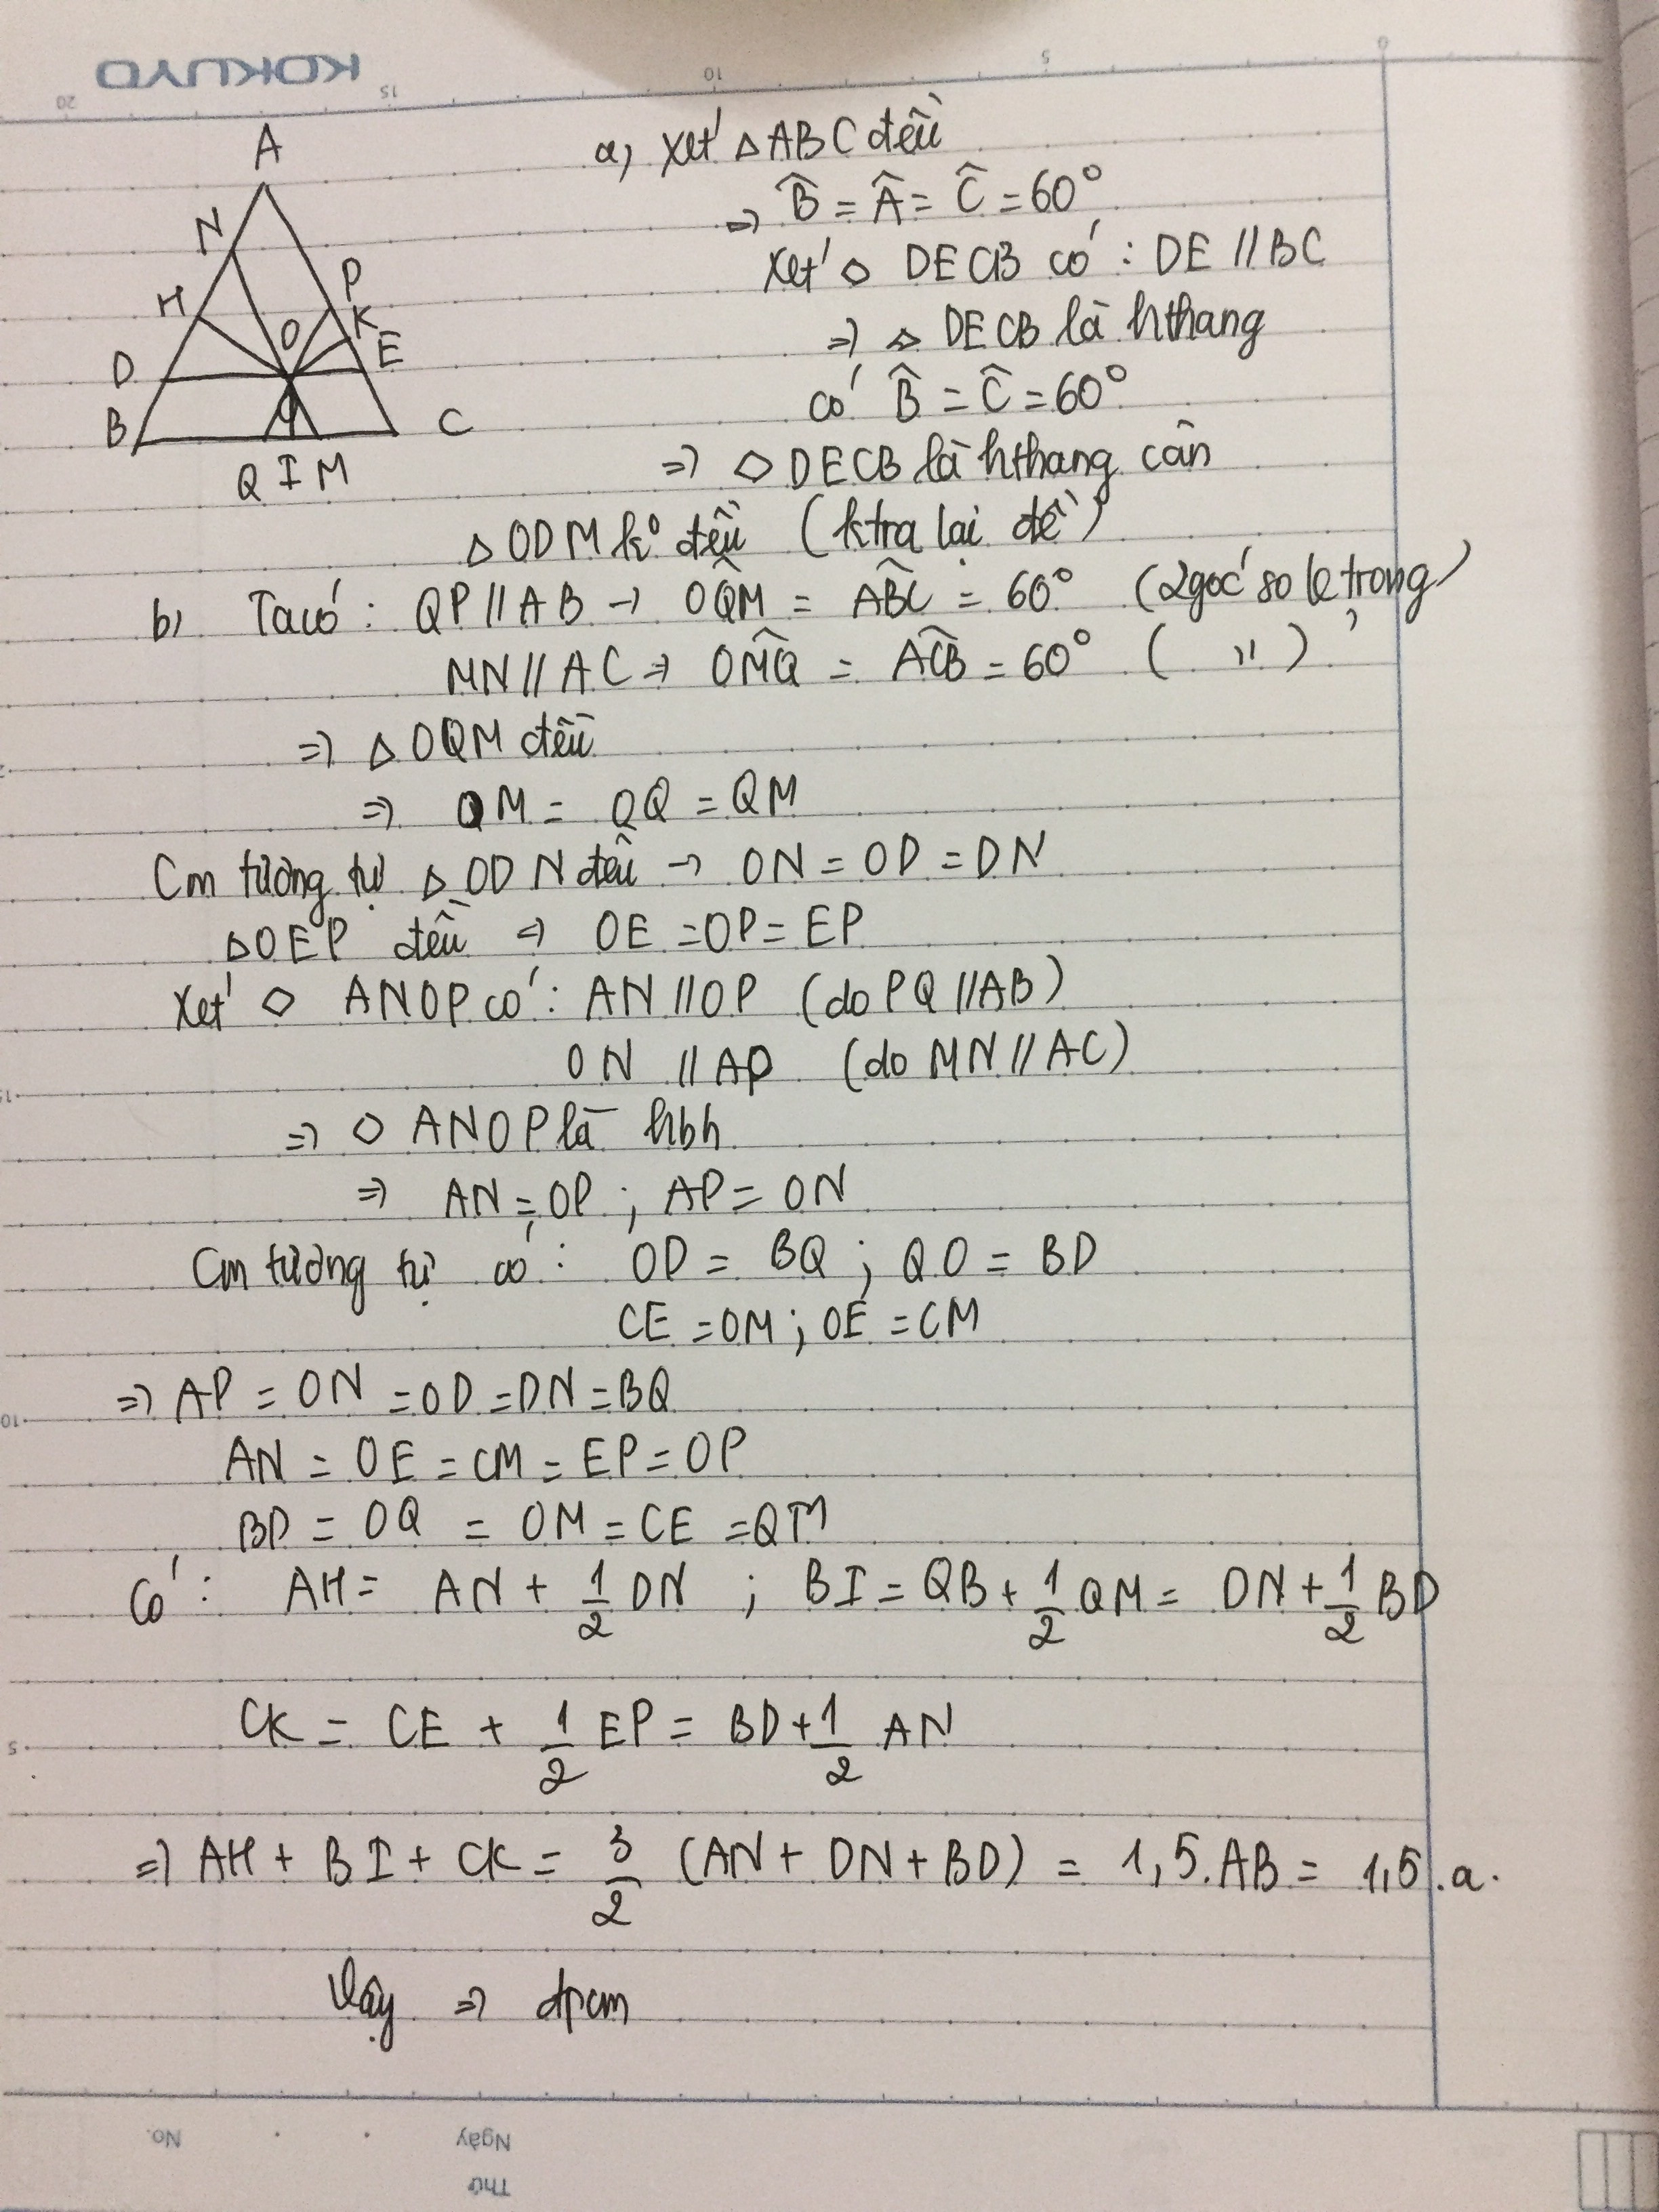 KOKUYO
20 15 10 5 0
A
N
H
P
K
O
E
D
B
C
Q I M
a) Xét △ABC đều
=> B̂ = Â = Ĉ = 60°
Xét ◇ DECB có : DE // BC
=> ◇ DECB là hthang
có B̂ = Ĉ = 60°
=> ◇ DECB là hthang cân
△ ODM k° đều (ktra lại đề)
b) Ta có : QP // AB → OQ̂M = AB̂C = 60° (2 góc so le trong)
MN // AC => OM̂Q = AĈB = 60° ( " )
=> △ OQM đều
=> OM = OQ = QM
Cm tương tự △ ODN đều → ON = OD = DN
△OEP đều => OE = OP = EP
Xét ◇ ANOP có : AN // OP (do PQ // AB)
ON // AP (do MN // AC)
=> ◇ ANOP là hbh
=> AN = OP ; AP = ON
Cm tương tự có : OD = BQ ; QO = BD
CE = OM ; OE = CM
=> AP = ON = OD = DN = BQ
AN = OE = CM = EP = OP
BD = OQ = OM = CE = QM
Có : AH = AN + 1/2 DN ; BI = QB + 1/2 QM = DN + 1/2 BD
CK = CE + 1/2 EP = BD + 1/2 AN
=> AH + BI + CK = 3/2 (AN + DN + BD) = 1,5.AB = 1,5.a.
Vậy => đpcm
No.
Ngày
Thứ